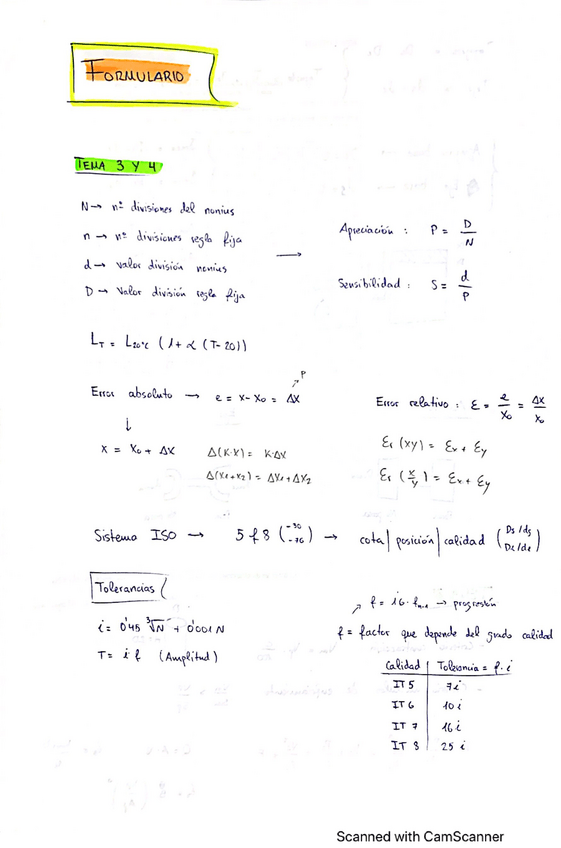 FORMULARIO
TEMA 3 Y 4
N → nº divisiones del nonius
n → nº divisiones regla fija
d → valor división nonius
D → valor división regla fija
→
Apreciación : P = D/N
Sensibilidad : S = d/P
L_T = L_20ºC (1 + α (T - 20))
Error absoluto → e = x - x₀ = Δx ↗ P
↓
x = x₀ + Δx
Δ(K·x) = K·Δx
Δ(x₁ + x₂) = Δx₁ + Δx₂
Error relativo : Ɛ = e/x₀ = Δx/x₀
Ɛr (xy) = Ɛx + Ɛy
Ɛr (x/y) = Ɛx + Ɛy
Sistema ISO → 5 f 8 (-30/-76) → cota | posición | calidad (Ds/ds Di/di)
Tolerancias
i = 0'45 ³√N + 0'001 N
T = i f (Amplitud)
↗ f = 1'6 · fₙ₋₁ → progresión
f = factor que depende del grado calidad
Calidad | Tolerancia = f · i
IT 5 | 7 i
IT 6 | 10 i
IT 7 | 16 i
IT 8 | 25 i
Scanned with CamScanner